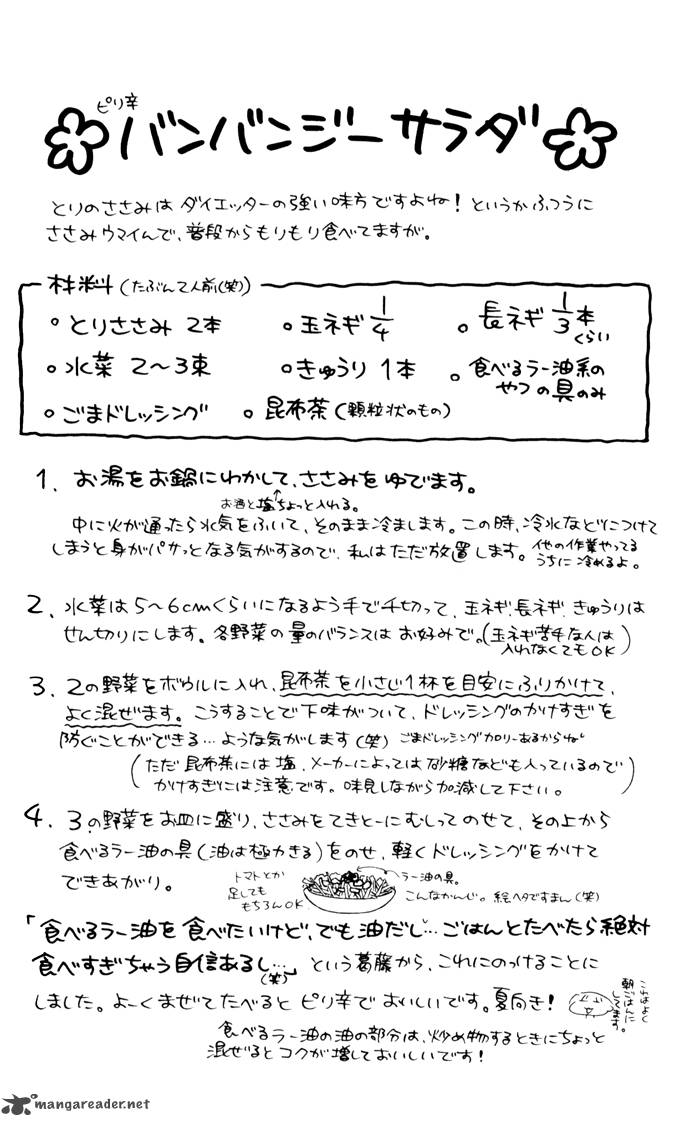 ピリ辛
バンバンジーサラダ
とりのささみは ダイエッターの強い味方ですよね！というかふつうに
ささみウマイんで、普段からもりもり食べてますが。
材料(たぶん2人前(笑))
とりささみ 2本
玉ネギ 1/4
長ネギ 1/3本
くらい
水菜 2〜3束
きゅうり 1本
食べるラー油系の
やつの具のみ
ごまドレッシング
昆布茶(顆粒状のもの)
1. お湯をお鍋にわかして、ささみをゆでます。
お酒と塩ちょっと入れる。
中に火が通ったら水気をふいて、そのまま冷まします。この時、冷水などにつけて
しまうと身がパサッとなる気がするので、私はただ放置します。
他の作業やってる
うちに冷めるよ。
2. 水菜は5〜6cmくらいになるよう手で千切って、玉ネギ、長ネギ、きゅうりは
せん切りにします。各野菜の量のバランスはお好みで。
(玉ネギ苦手な人は
入れなくてもOK)
3. 2の野菜をボウルに入れ、昆布茶を小さじ1杯を目安にふりかけて、
よく混ぜます。こうすることで下味がついて、ドレッシングのかけすぎを
防ぐことができる…ような気がします(笑) ごまドレッシングカロリーあるからね
(ただ昆布茶には塩、メーカーによっては砂糖なども入っているので
かけすぎには注意です。味見しながら加減して下さい。)
4. 3の野菜をお皿に盛り、ささみをてきとーにむしってのせて、その上から
食べるラー油の具(油は極力きる)をのせ、軽くドレッシングをかけて
できあがり。
トマトとか
足しても
もちろんOK
ラー油の具。
こんなかんじ。絵ヘタですまん(笑)
「食べるラー油を食べたいけど、でも油だし…ごはんとたべたら絶対
食べすぎちゃう自信あるし…」(笑)という葛藤から、これにのっけることに
しました。よーくまぜてたべるとピリ辛でおいしいです。夏向き！
こやはよく
朝ごはんに
してます。
食べるラー油の油の部分は、炒め物するときにちょっと
混ぜるとコクが増しておいしいです！
mangareader.net